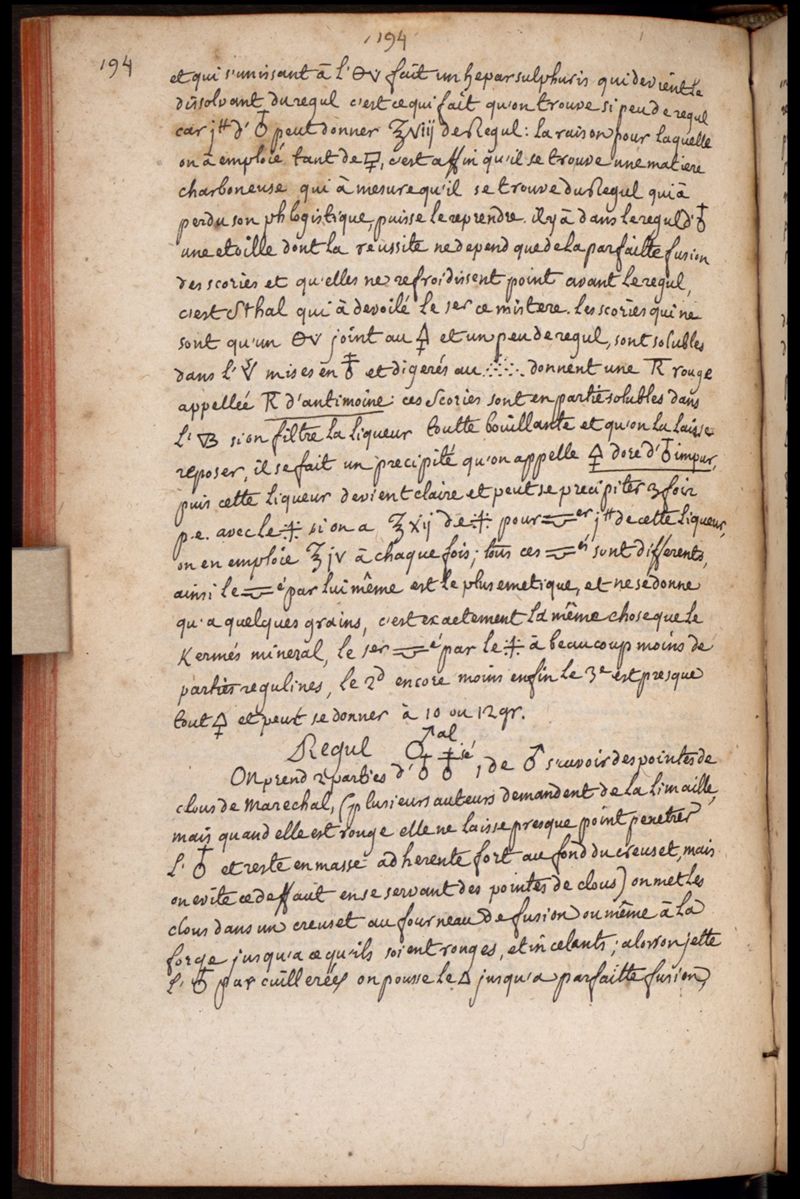 194
194
et qui s'unissant à l'🜔V fait un hepar sulphuris qui devient le
dissolvant du regul c'est ce qui fait qu'on trouve si peu de regul
car j℔ d'♁ peut donner ʒviij de Regul: la raison pour laquelle
on à emploié tant de 🜿, c'est affin qu'il se trouve une matiere
charboneuse qui à mesure qu'il se trouve du Regul qui à
perdu son phlogistique, puisse le reprendre. il y à dans le regul d'♁
une etoille dont la reussite ne depend que de la parfaitte fusion
des scories et qu'elles ne refroidissent point avant le regul,
c'est Sthal qui à devoilé le 1er ce mistere. Les scories qui ne
sont qu'un 🜔V joint au 🜍 et un peu de regul, sont solubles
dans l' mises en et digerés au donnent une rouge
appellée d'antimoine: ces scories sont en partie solubles dans
l'🜄 si on filtre la liqueur toutte bouillante et qu'on la laisse
reposer, il se fait un precipité qu'on appelle 🜍 doré d'♁ impur,
puis cette liqueur devient claire et peut se precipiter 3 fois
p.e. avec le si on a ʒxij de pour er j℔ de cette liqueur,
on en emploie ʒjv à chaque fois; tous ces és sont differents,
ainsi le é par lui même est le plus emetique, et ne se donne
qu'a quelques grains, c'est exactement la même chose que le
Kermés mineral, le 1er é par le à beaucoup moins de
parties regulines, le 2d encore moins enfin le 3e est presque
tout 🜍 et peut se donner à 10 ou 12 gr.
Regul ♂al
On prend 2 parties d'♁ sé 1 de ♂ scavoir des pointes de
clous de Marechal, (plusieurs auteurs demandent de la limaille,
mais quand elle est rouge elle ne laisse presque point penetrer
l'♁ et reste en masse adherente fort au fond du creuset, mais
on evite ce deffaut en se servant des pointes de clous) on met les
clous dans un creuset au fourneau de fusion ou même à la
forge jusqu'a ce qu'ils soient rouges, etincelants; alors on jette
l'♁ par cuillerées on pousse le 🜂 jusqu'a parfaitte fusion,